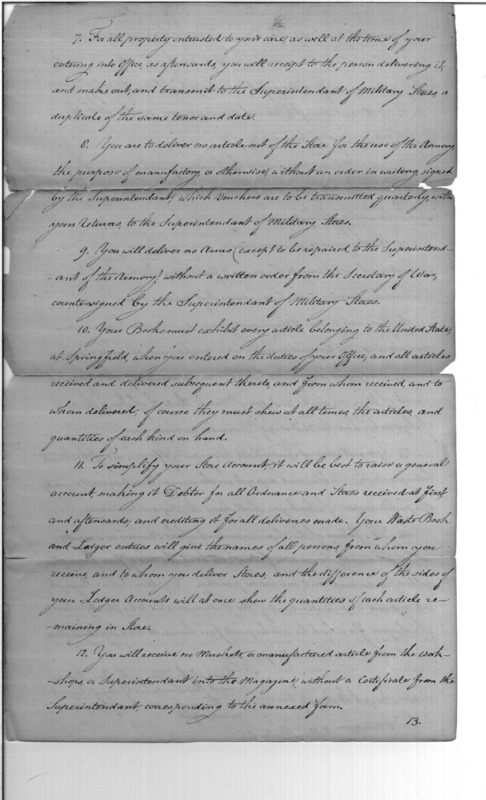 7. For all property entrusted to your care, as well at the time of your
entering into Office, as afterwards, you will receipt to the person delivering it,
and make out, and transmit to the Superintendant of Military Stores, a
duplicate of the same tenor and date.
8. You are to deliver no article out of the Store for the use of the Armory
the purpose of manufactory, or otherwise, without an order in writing, signed
by the Superintendant, which Vouchers are to be transmitted quarterly, with
your Returns, to the Superintendant of Military Stores.
9. You will deliver no Arms (except to be repaired to the Superintend-
-ant of the Armory) without a written order from the Secretary of War,
countersigned by the Superintendant of Military Stores.
10. Your Books must exhibit every article belonging to the United States,
at Springfield, when you entered on the duties of your Office, and all articles
received and delivered subsequent thereto, and from whom received, and to
whom delivered; of course they must shew at all times, the articles, and
quantities of each kind on hand.
11. To simplify your Store Account, it will be best to raise a general
account making it Debtor for all Ordnance and Stores received at first
and afterwards; and crediting it for all deliveries made. Your Waste Book
and Ledger entries will give the names of all persons from whom you
receive, and to whom you deliver Stores, and the difference of the sides of
your Ledger Accounts will at once show the quantities of each article re-
maining in Store.
12. You will receive no Muskets, or manufactured article from the work-
-shops, or Superintendant into the Magazine, without a Certificate from the
Superintendant, corresponding to the annexed form.
13.